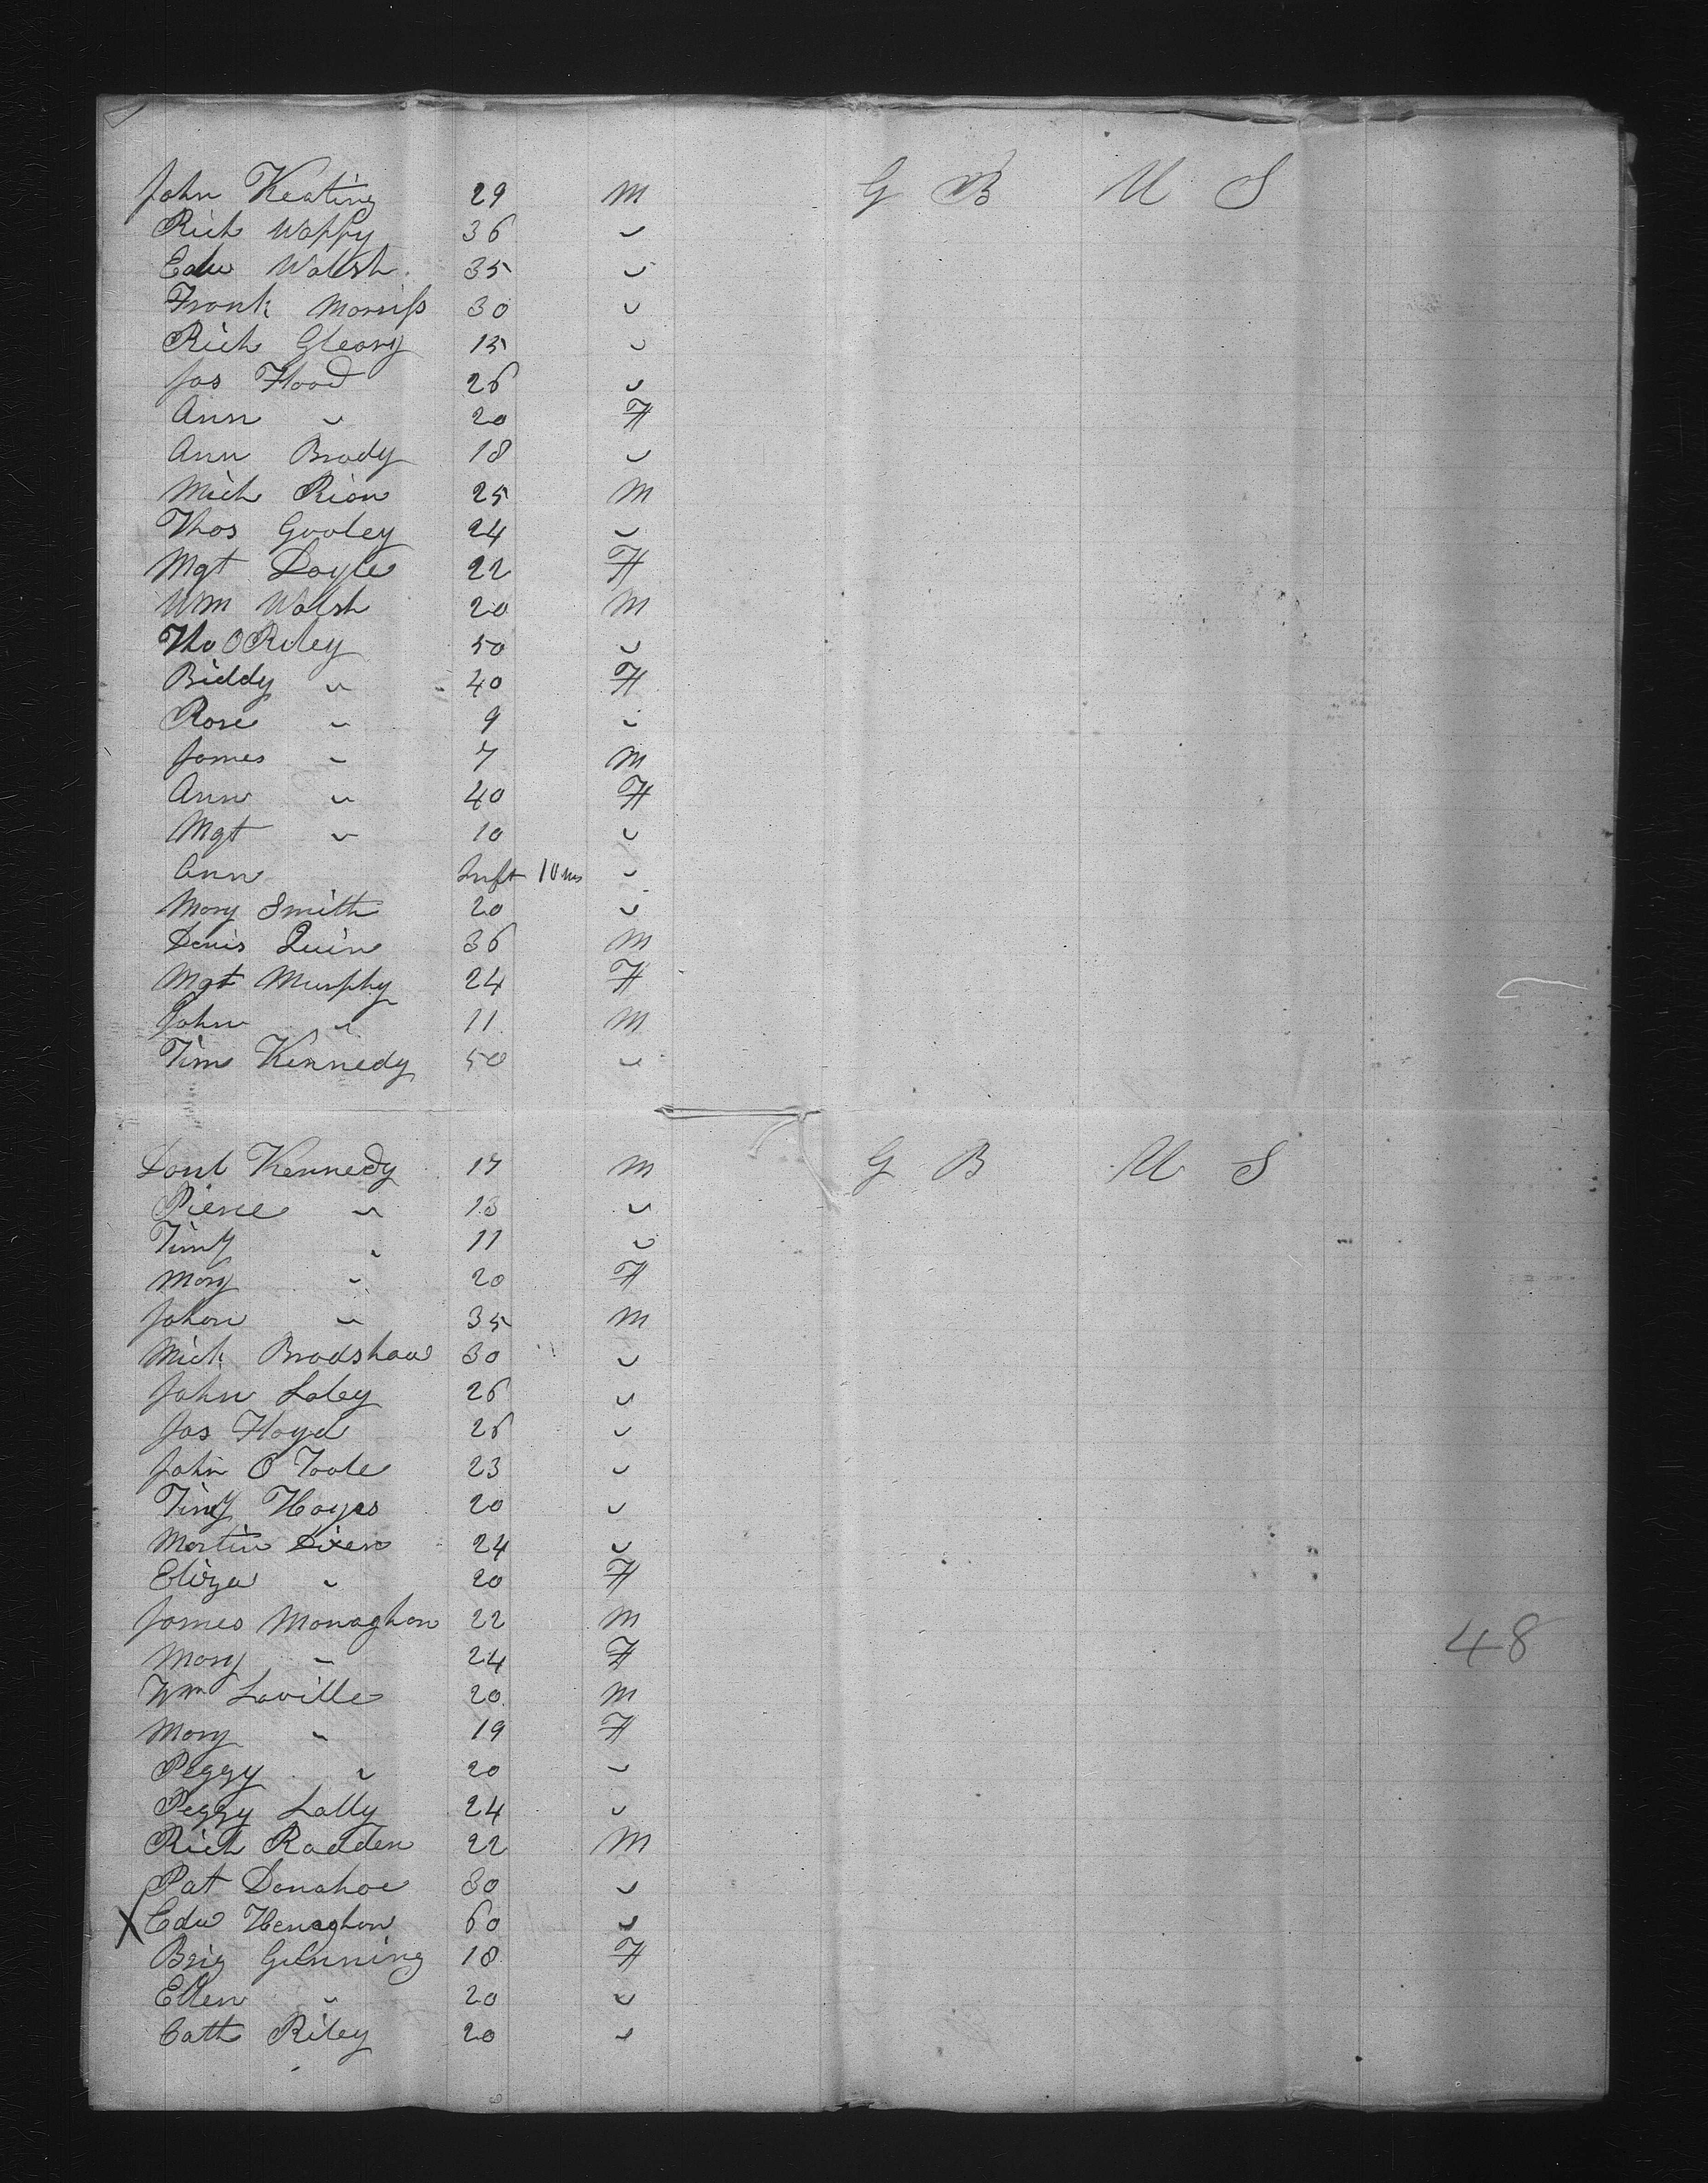 John Keating 29 M G B U S
Rich Wappy 36 "
Edw Walsh 35 "
Frank Morriss 30 "
Rich Gleary 15 "
Jas Flood 26 "
Ann " 20 F
Ann Brady 18 "
Mich Rian 25 M
Thos Gooley 24 "
Mgt Doyle 22 F
Wm Walsh 20 M
Tho O Riley 50 "
Biddy " 40 F
Rose " 9 "
James " 7 M
Ann " 40 F
Mgt " 10 "
Ann Inft 10 ms "
Mary Smith 20 "
Denis Quin 36 M
Mgt Murphy 24 F
John " 11 M
Tim Kennedy 50 "
Danl Kennedy 17 M G B U S
Pierce " 13 "
Timy " 11 "
Mary " 20 F
Johon " 35 M
Mich Bradshaw 30 "
John Laley 26 "
Jas Floyd 26 "
John O Toole 23 "
Timy Hayes 20 "
Martin Dixen 24 "
Eliza " 20 F
James Monaghan 22 M
Mary " 24 F 48
Wm Laville 20 M
Mary " 19 F
Peggy " 20 "
Peggy Lally 24 "
Rich Radden 22 M
Pat Donahoe 30 "
X Edw Henaghan 60 "
Brig Gunning 18 F
Ellen " 20 "
Cath Riley 20 "